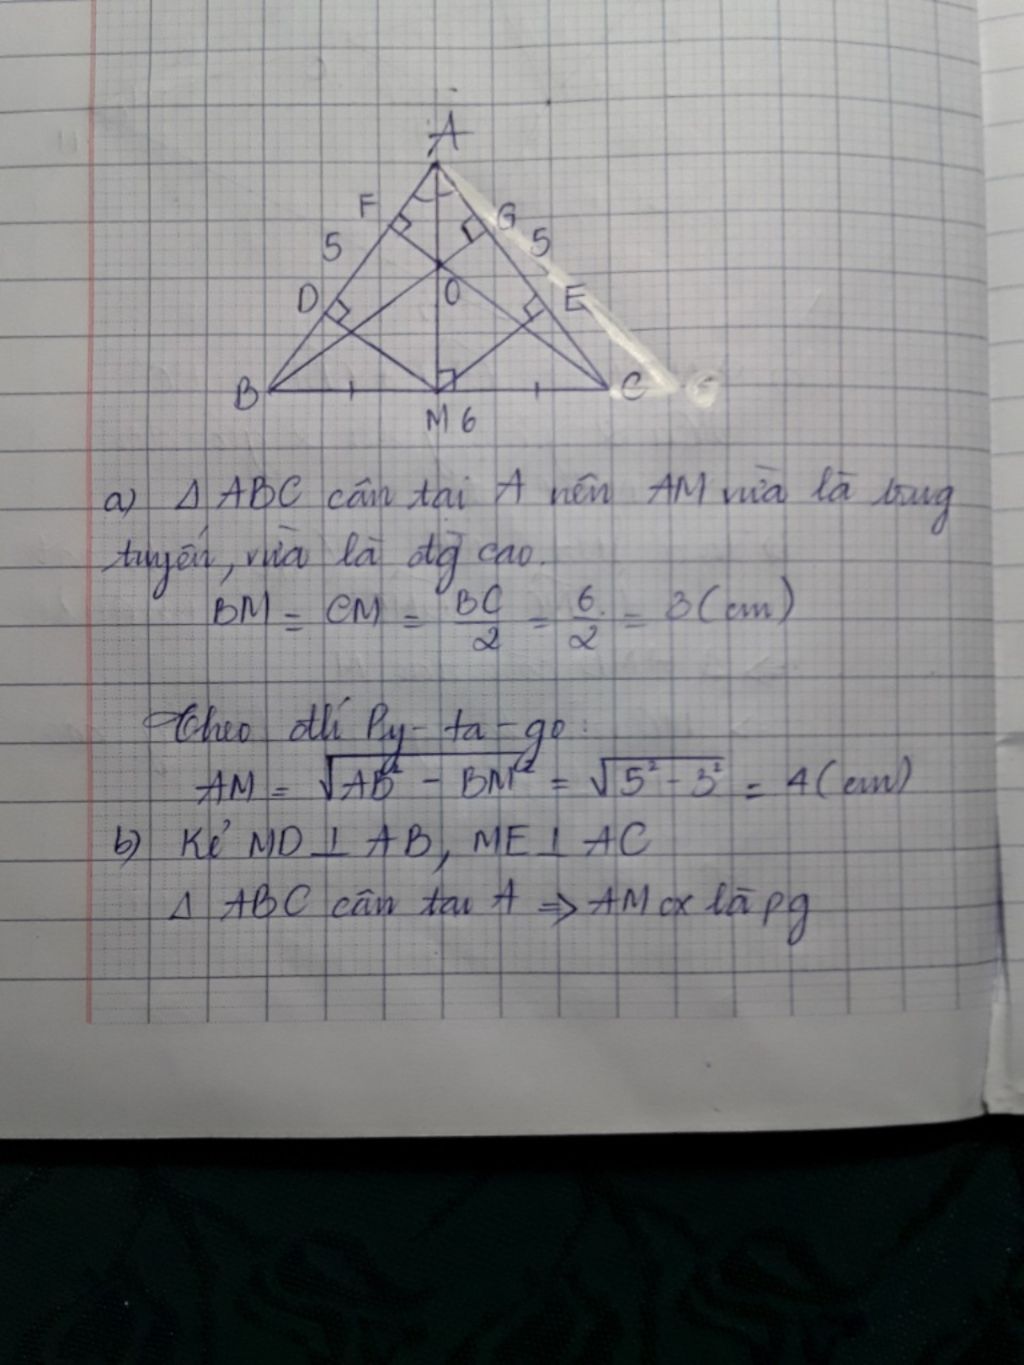 A
F
G
5
5
D
E
O
B
C
M 6
a) Δ ABC cân tại A nên AM vừa là trung
tuyến, vừa là đg cao.
BM = CM = BC/2 = 6/2 = 3 (cm)
Theo đlí Py-ta-go:
AM = √AB² - BM² = √5² - 3² = 4 (cm)
b) Kẻ MD ⊥ AB, ME ⊥ AC
Δ ABC cân tại A => AM cx là pg